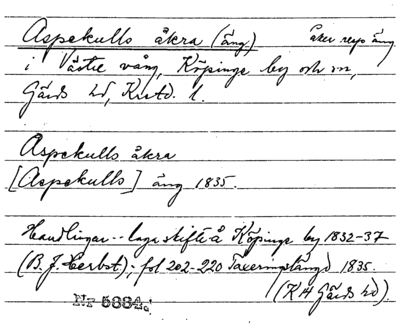 Aspekulls åkra (äng.) åker resp äng
i Västre vång, Köpinge by och sn,
Gärds hd, Kristd. l.
Aspekulls åkra
[Aspekulls] äng 1835.
Handlingar .. laga skifte å Köpinge by 1832-37
(B. J. Herbst); fol 202-220 Taxeringslängd 1835.
(KH Gärds hd)
Nr 5884.